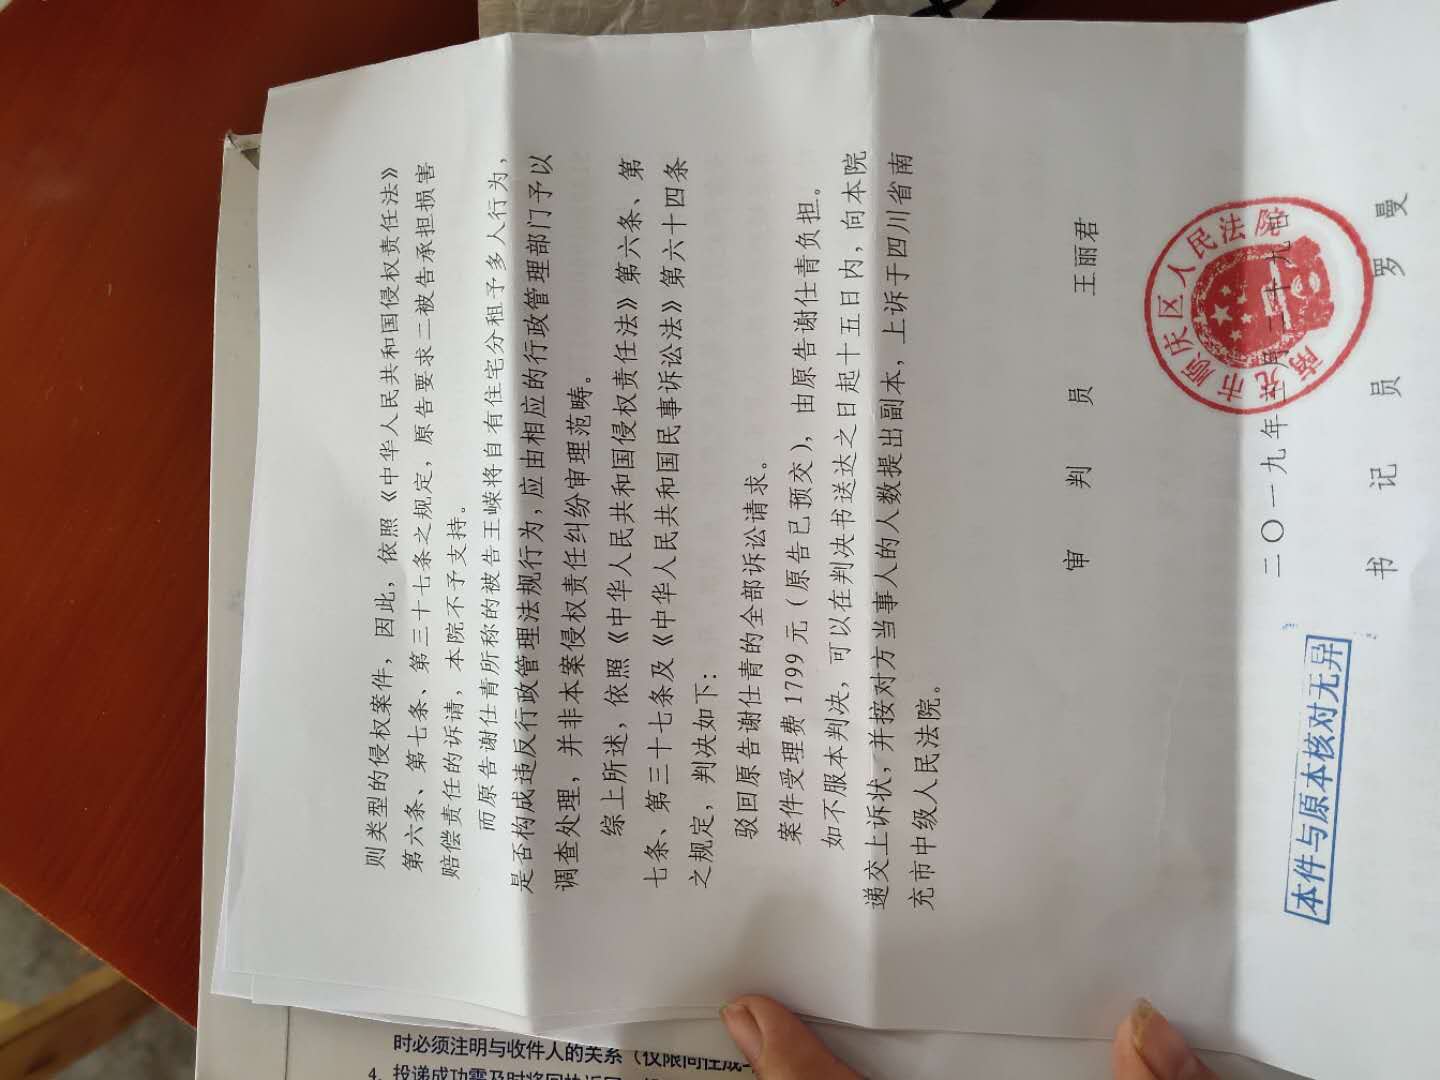 则类型的侵权案件，因此，依照《中华人民共和国侵权责任法》
第六条、第七条、第三十七条之规定，原告要求二被告承担损害
赔偿责任的诉请，本院不予支持。
而原告谢仕青所称的被告王嵘将自有住宅分租予多人行为，
是否构成违反行政管理法规行为，应由相应的行政管理部门予以
调查处理，并非本案侵权责任纠纷审理范畴。
综上所述，依照《中华人民共和国侵权责任法》第六条、第
七条、第三十七条及《中华人民共和国民事诉讼法》第六十四条
之规定，判决如下：
驳回原告谢仕青的全部诉讼请求。
案件受理费1799元（原告已预交），由原告谢仕青负担。
如不服本判决，可以在判决书送达之日起十五日内，向本院
递交上诉状，并按对方当事人的人数提出副本，上诉于四川省南
充市中级人民法院。
审 判 员 王丽君
二〇一九年 月二十九日
南充市顺庆区人民法院
书 记 员 罗 曼
本件与原本核对无异
时必须注明与收件人的关系（仅限同性成
4、投递成功需及时将回执返回